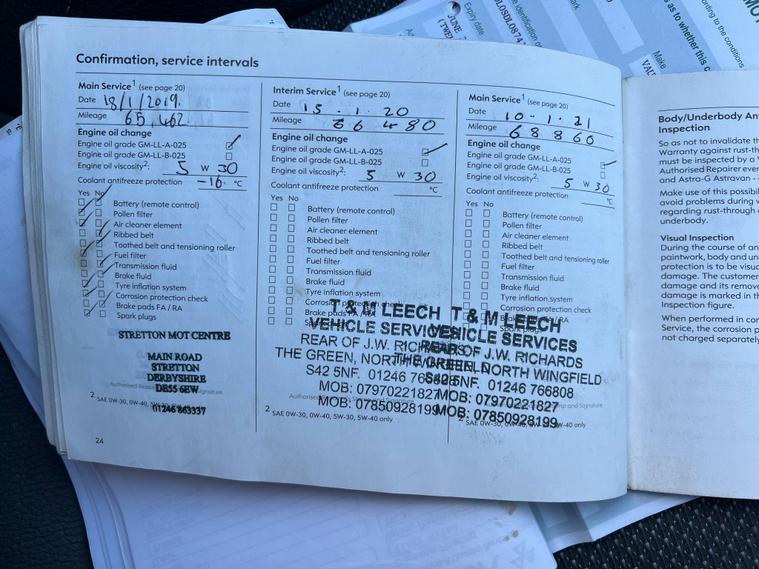 Confirmation, service intervals
Main Service1 (see page 20)
Date 18/1/2019.
Mileage 65,462
Engine oil change
Engine oil grade GM-LL-A-025
Engine oil grade GM-LL-B-025
Engine oil viscosity2: 5 W 30
Coolant antifreeze protection -16 °C
Yes No
Battery (remote control)
Pollen filter
Air cleaner element
Ribbed belt
Toothed belt and tensioning roller
Fuel filter
Transmission fluid
Brake fluid
Tyre inflation system
Corrosion protection check
Brake pads FA / RA
Spark plugs
STRETTON MOT CENTRE
MAIN ROAD
STRETTON
DERBYSHIRE
DE55 6EW
01246 863337
2 SAE 0W-30, 0W-40, 5W-30, 5W-40 only
24
Interim Service1 (see page 20)
Date 15 . 1 . 20
Mileage 66480
Engine oil change
Engine oil grade GM-LL-A-025
Engine oil grade GM-LL-B-025
Engine oil viscosity2: 5 W 30
Coolant antifreeze protection °C
Yes No
Battery (remote control)
Pollen filter
Air cleaner element
Ribbed belt
Toothed belt and tensioning roller
Fuel filter
Transmission fluid
Brake fluid
Tyre inflation system
Corrosion protection check
Brake pads FA / RA
T & M LEECH
VEHICLE SERVICES
REAR OF J.W. RICHARDS
THE GREEN, NORTH WINGFIELD
S42 5NF. 01246 766808
MOB: 07970221827
MOB: 07850928199
2 SAE 0W-30, 0W-40, 5W-30, 5W-40 only
Main Service1 (see page 20)
Date 10 - 1 . 21
Mileage 68860
Engine oil change
Engine oil grade GM-LL-A-025
Engine oil grade GM-LL-B-025
Engine oil viscosity2: 5 W 30
Coolant antifreeze protection °C
Yes No
Battery (remote control)
Pollen filter
Air cleaner element
Ribbed belt
Toothed belt and tensioning roller
Fuel filter
Transmission fluid
Brake fluid
Tyre inflation system
T & M LEECH
VEHICLE SERVICES
REAR OF J.W. RICHARDS
THE GREEN, NORTH WINGFIELD
S42 5NF. 01246 766808
MOB: 07970221827
MOB: 07850928199
2 SAE 0W-30, 0W-40, 5W-30, 5W-40 only
Body/Underbody
Inspection
So as not to invalidate
Warranty against rust-th
must be inspected by a
Authorised Repairer ever
and Astra-G Astravan -
Make use of this possibil
avoid problems during
regarding rust-through
underbody.
Visual Inspection
During the course of an
paintwork, body and un
protection is to be visua
damage. The customer
damage and its remova
damage is marked in th
Inspection figure.
When performed in cor
Service, the corrosion p
not charged separately
Expiry date
JUNE
Make
as to whether this